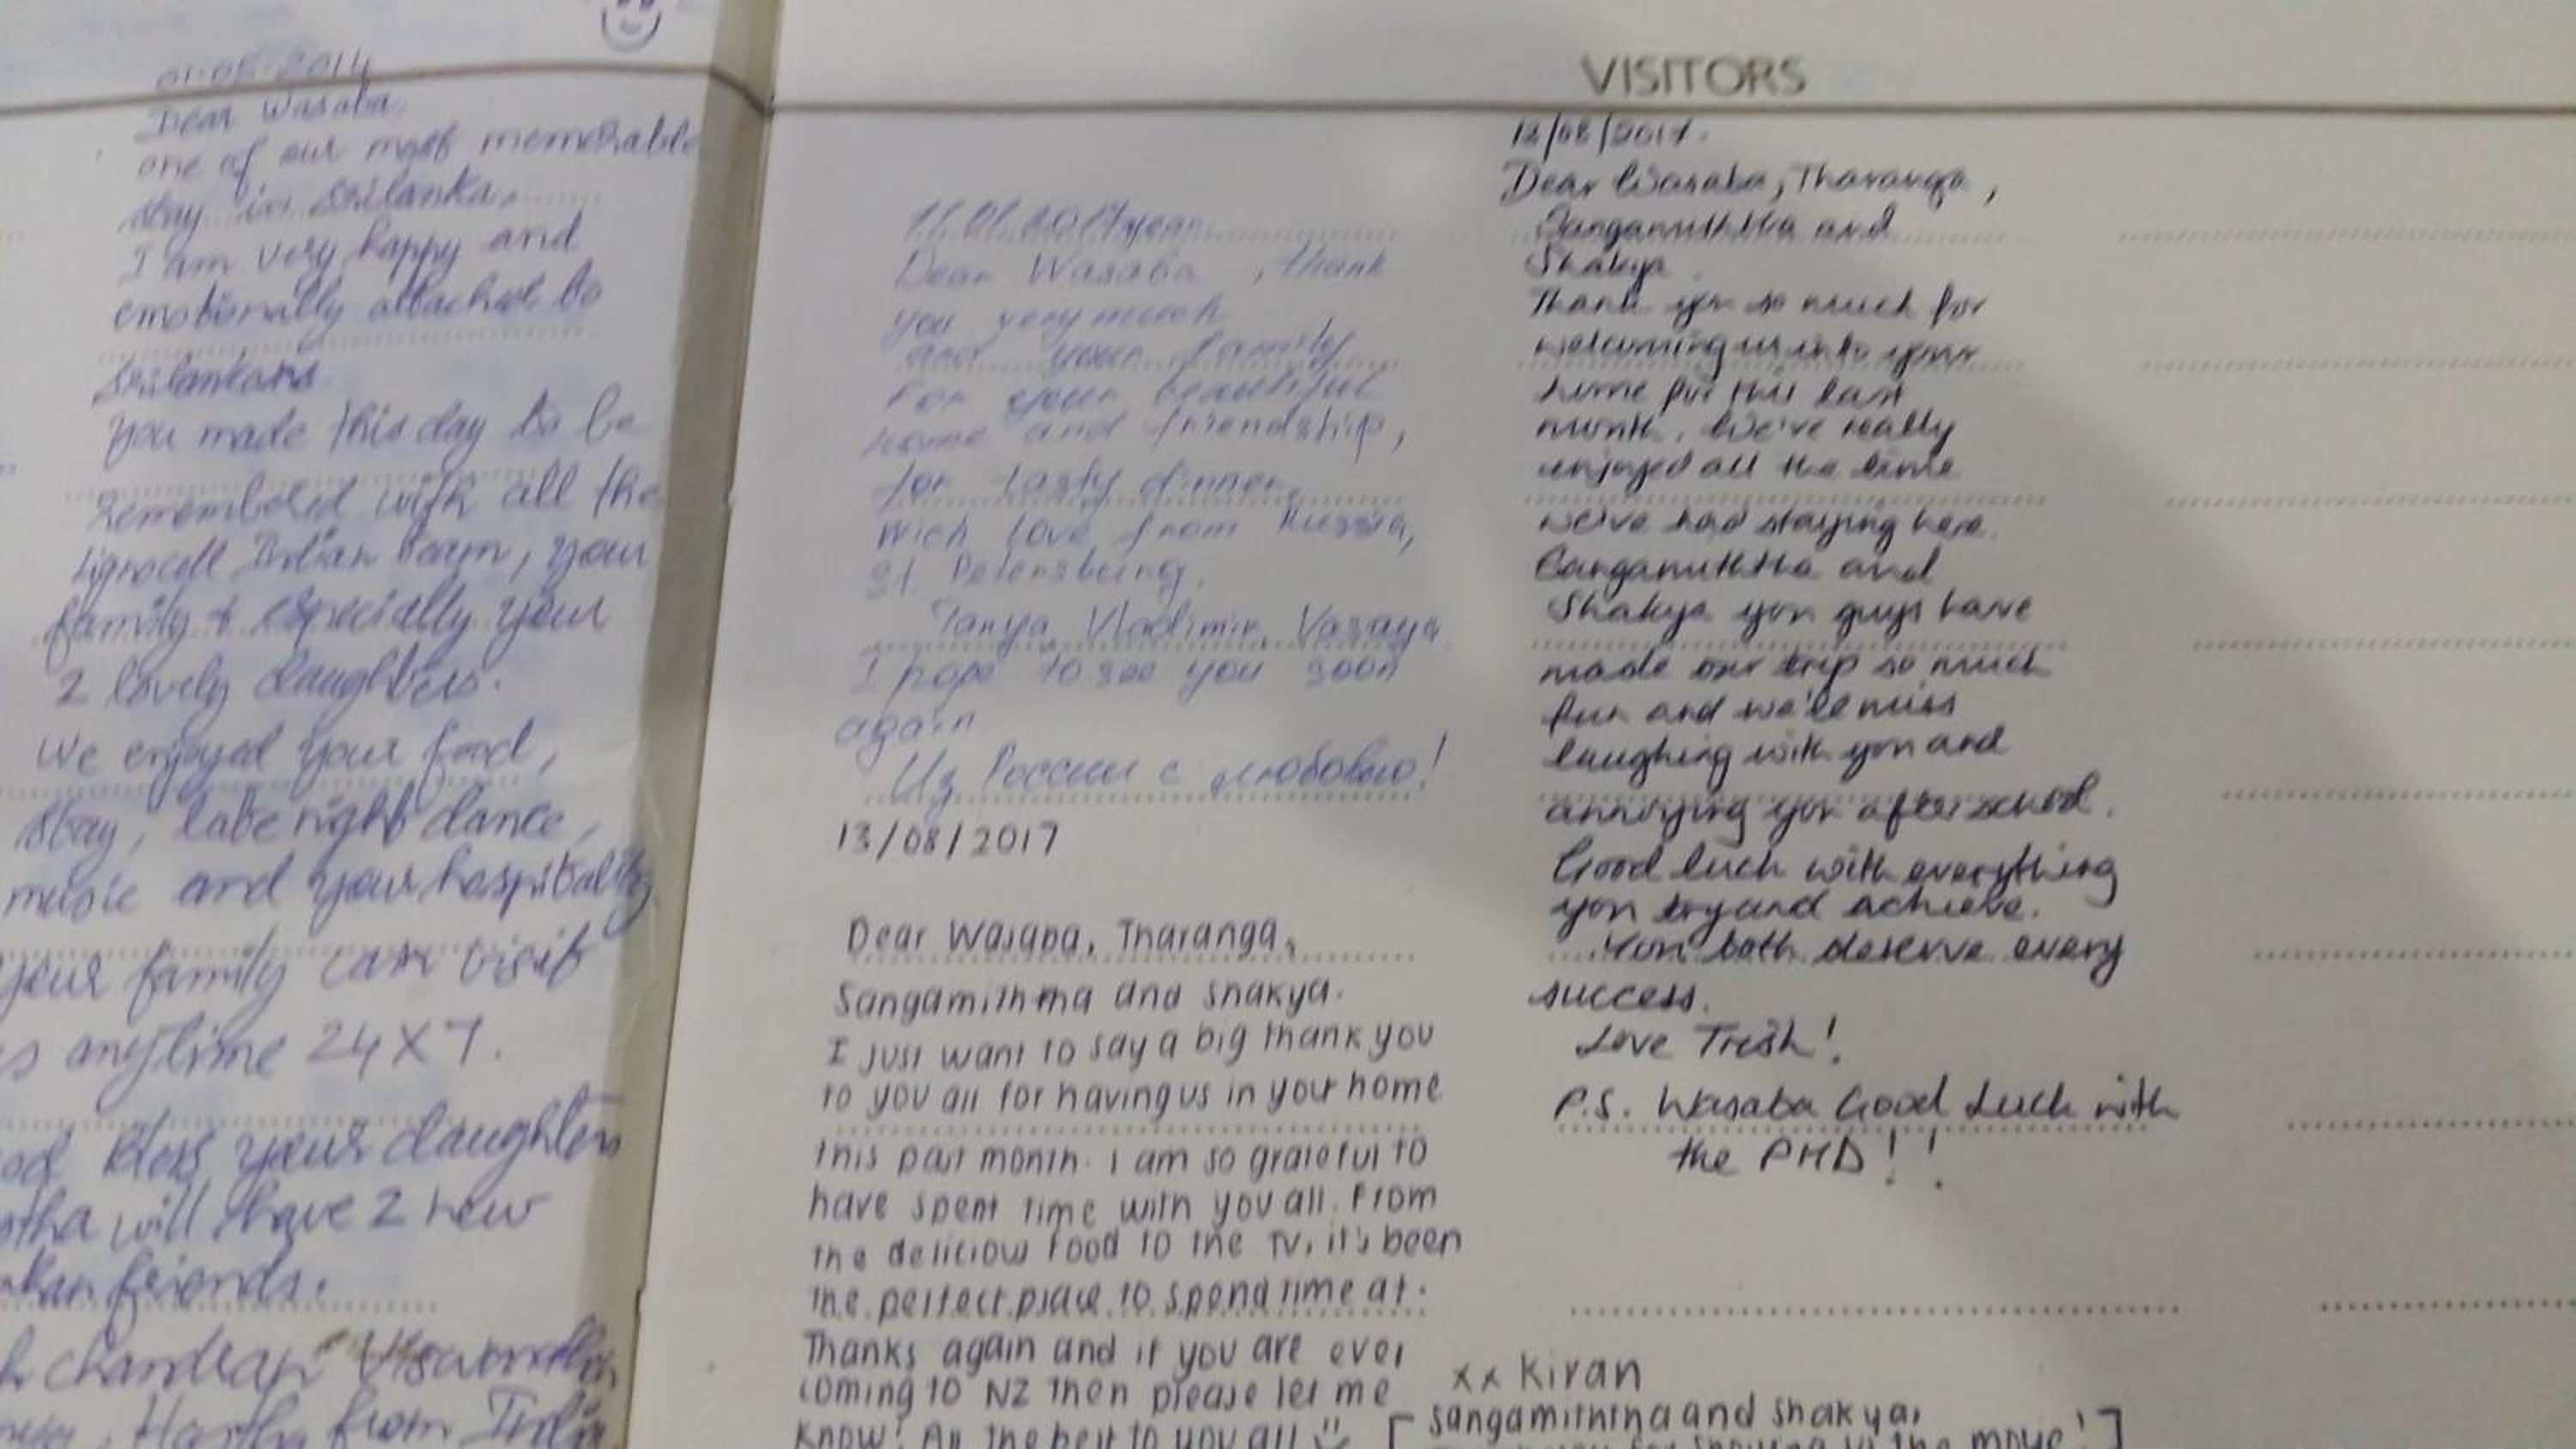 01-05-2014
Dear Wasaba,
one of our most memorable
stay in Srilanka.
I am very happy and
emotionally attached to
Srilankans
you made this day to be
Remembered with all the
Lignocell Indian team, your
family & especially your
2 lovely daughters.
We enjoyed your food,
stay, late night dance,
music and your hospitality
your family can visit
anytime 24x7.
bless your daughters
will have 2 new
friends.
Hartha from India
VISITORS
year
Dear Wasaba, thank
you very much
and your family
For your beautiful
home and friendship,
for tasty dinner,
Wich love from Russia,
St. Petersburg,
Tanya, Vladimir, Vasaya
I hope to see you soon
again
Из России с любовью!
13/08/2017
Dear Wasaba, Tharanga,
Sangamithma and Shakya.
I just want to say a big thank you
to you all for having us in your home
this past month. I am so grateful to
have spent time with you all. From
the deliciow food to the TV, it's been
the perfect place to spend time at.
Thanks again and if you are ever
coming to NZ then please let me
know! All the best to you all
xx Kiran
[Sangamiththa and Shakya,
the movie!]
12/08/2017.
Dear Wasaba, Tharanga,
Sangamiththa and
Shakya
Thank you so much for
welcoming us into your
home for this last
month. We've really
enjoyed all the time
we've had staying here.
Sangamiththa and
Shakya you guys have
made our trip so much
fun and we'll miss
laughing with you and
annoying you after school.
Good luck with everything
you try and achieve.
You both deserve every
success.
Love Trish!
P.S. Wasaba Good Luck with
the PHD!!